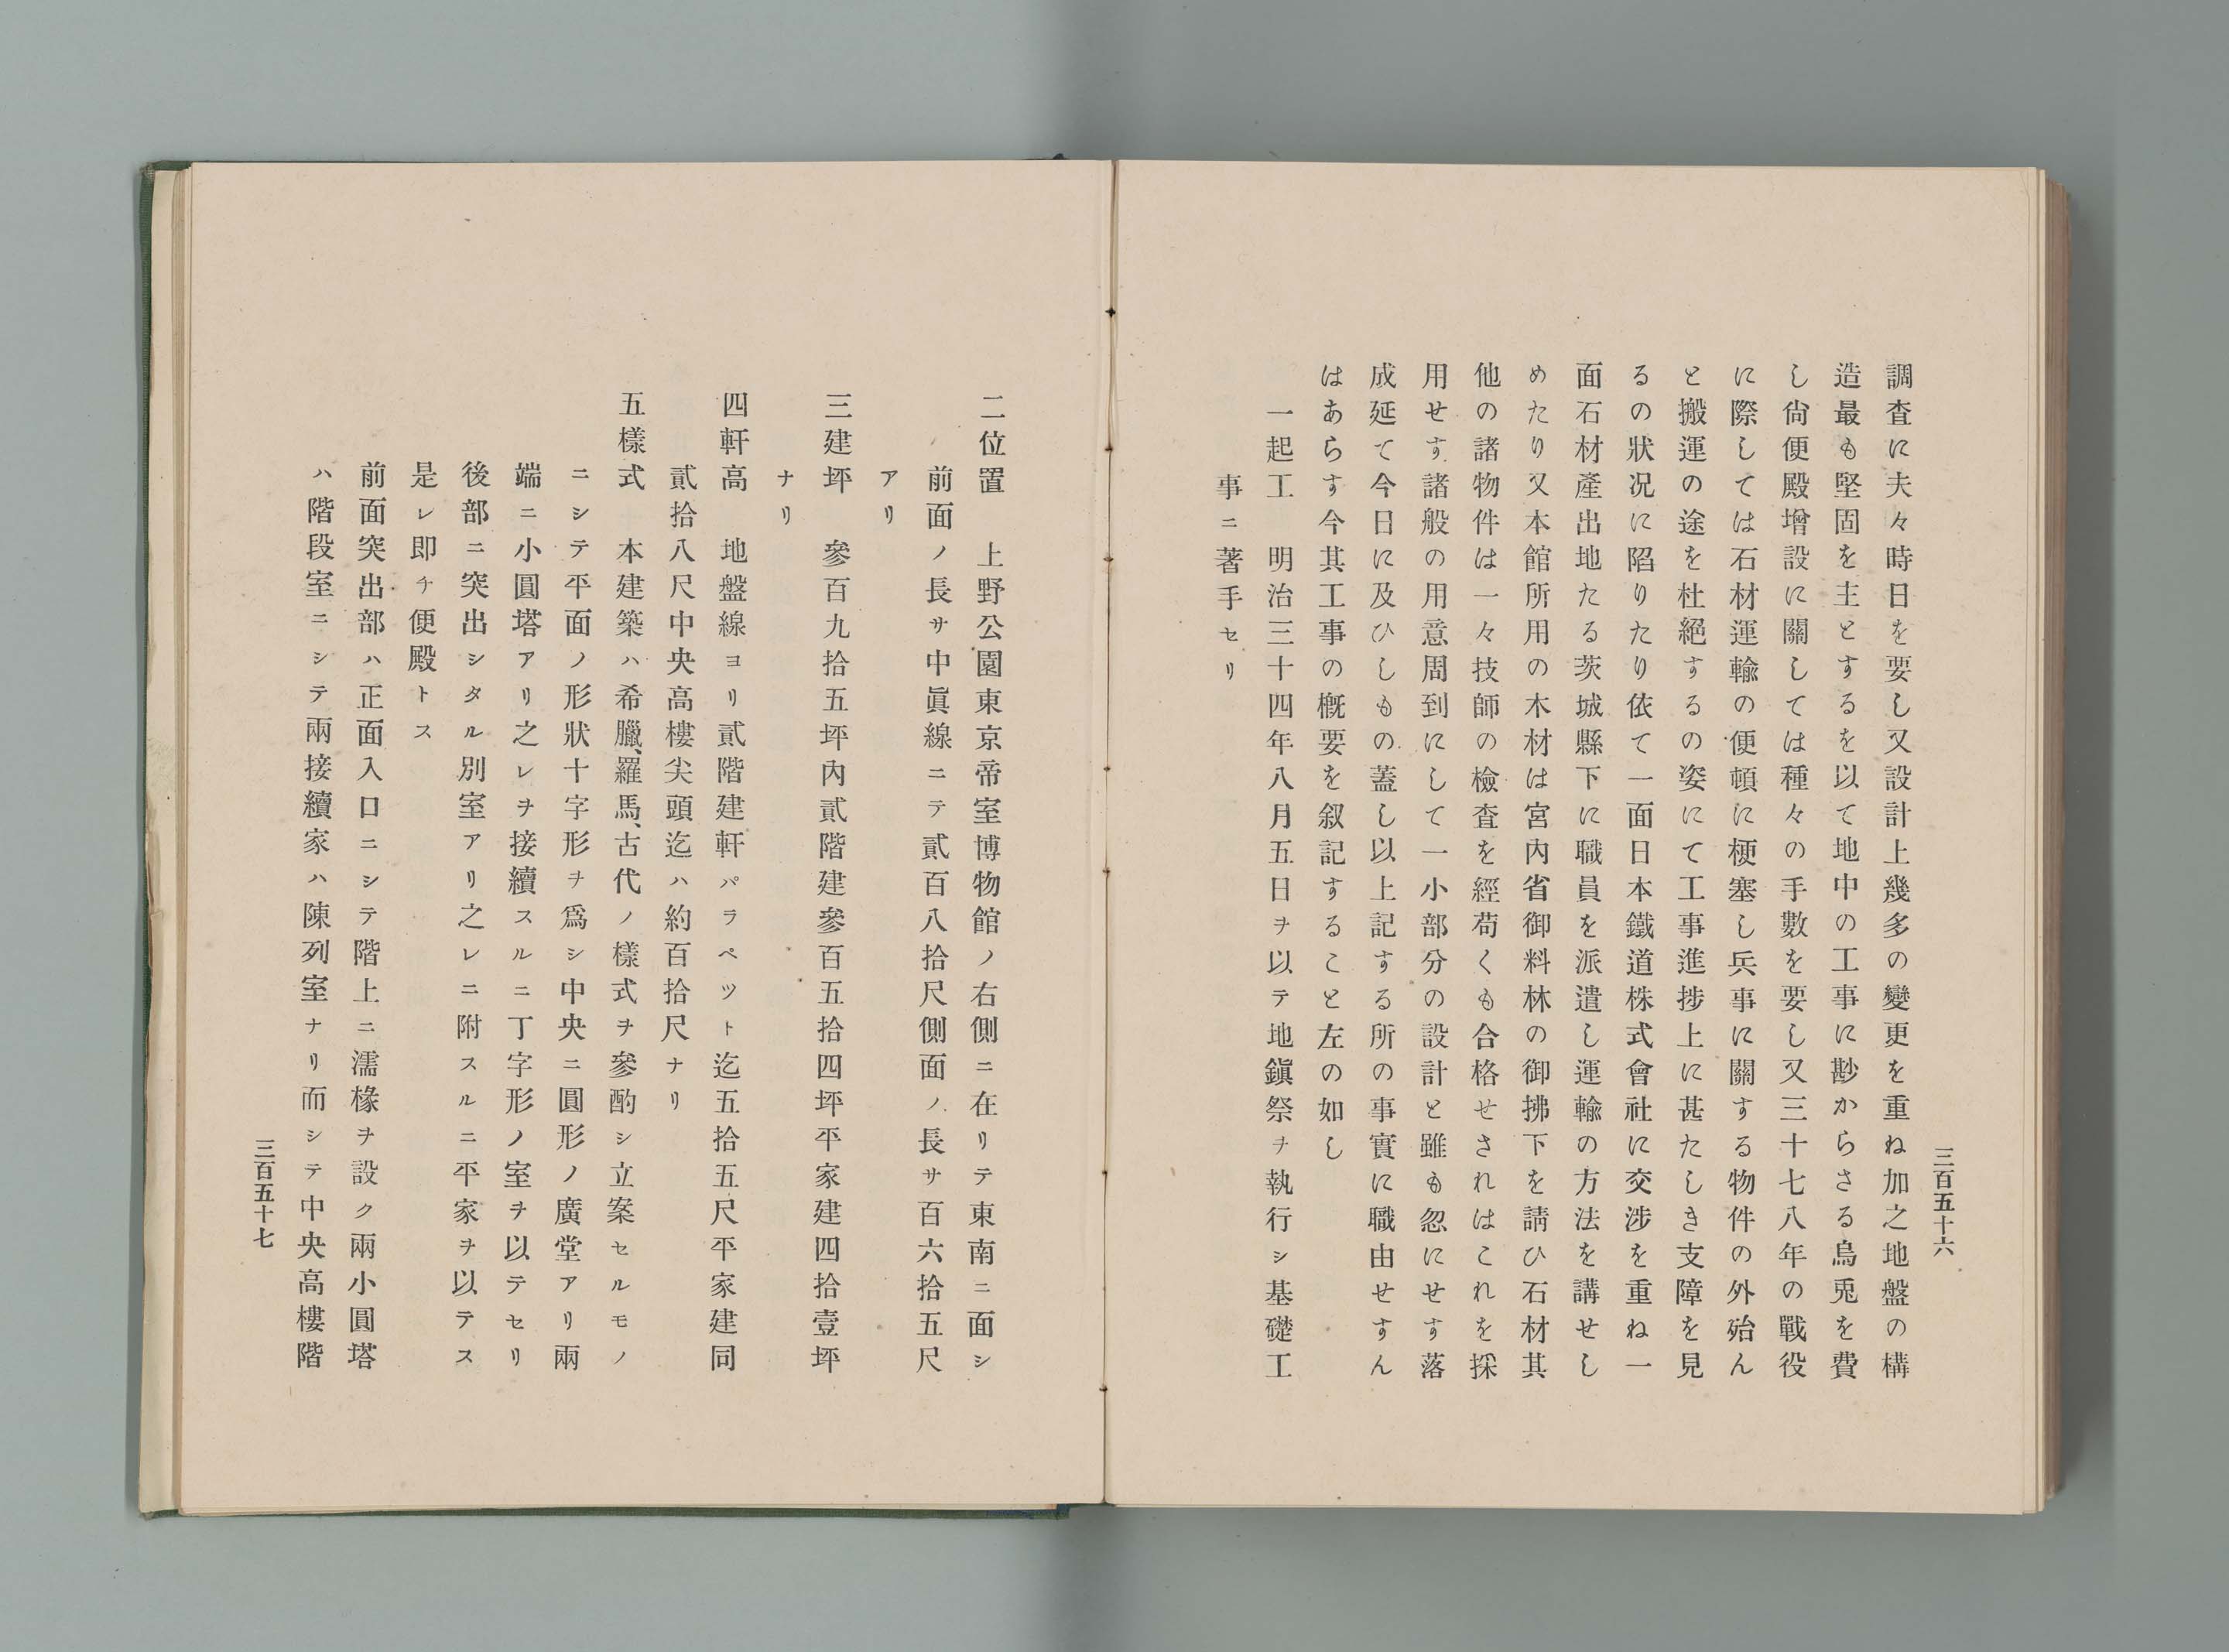 三百五十六
調査に夫々時日を要し又設計上幾多の變更を重ね加之地盤の構
造最も堅固を主とするを以て地中の工事に尠からさる烏兎を費
し尙便殿增設に關しては種々の手數を要し又三十七八年の戰役
に際しては石材運輸の便頓に梗塞し兵事に關する物件の外殆ん
と搬運の途を杜絕するの姿にて工事進捗上に甚たしき支障を見
るの狀況に陷りたり依て一面日本鐵道株式會社に交涉を重ね一
面石材產出地たる茨城縣下に職員を派遣し運輸の方法を講せし
めたり又本館所用の木材は宮內省御料林の御拂下を請ひ石材其
他の諸物件は一々技師の檢査を經苟くも合格せされはこれを採
用せす諸般の用意周到にして一小部分の設計と雖も忽にせす落
成延て今日に及ひしもの蓋し以上記する所の事實に職由せすん
はあらす今其工事の槪要を叙記すること左の如し
一起工　明治三十四年八月五日ヲ以テ地鎭祭ヲ執行シ基礎工
事ニ著手セリ
二位置　上野公園東京帝室博物館ノ右側ニ在リテ東南ニ面シ
前面ノ長サ中眞線ニテ貳百八拾尺側面ノ長サ百六拾五尺
アリ
三建坪　參百九拾五坪內貳階建參百五拾四坪平家建四拾壹坪
ナリ
四軒高　地盤線ヨリ貳階建軒パラペツト迄五拾五尺平家建同
貳拾八尺中央高樓尖頭迄ハ約百拾尺ナリ
五樣式　本建築ハ希臘、羅馬、古代ノ樣式ヲ參酌シ立案セルモノ
ニシテ平面ノ形狀十字形ヲ爲シ中央ニ圓形ノ廣堂アリ兩
端ニ小圓塔アリ之レヲ接續スルニ丁字形ノ室ヲ以テセリ
後部ニ突出シタル別室アリ之レニ附スルニ平家ヲ以テス
是レ即チ便殿トス
前面突出部ハ正面入口ニシテ階上ニ濡椽ヲ設ク兩小圓塔
ハ階段室ニシテ兩接續家ハ陳列室ナリ而シテ中央高樓階
三百五十七